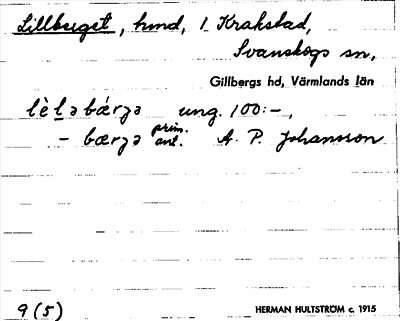 Lillberget, hmd, 1 Krakstad,
Svanskogs sn,
Gillbergs hd, Värmlands län
lèləbǽrjə ung. 100:-,
- bærjə prim. ant. A. P. Johansson
9 (5)
HERMAN HULTSTRÖM c. 1915